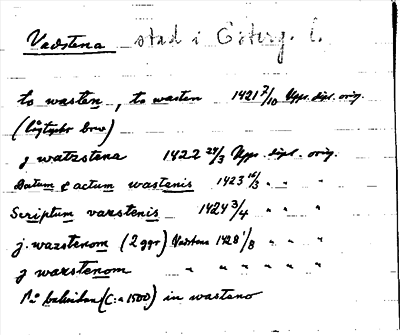 Vadstena stad i Österg. l.
to wasten, to wasten 1421 7/10 Upps. dipl. orig.
(lågtyskt brev)
j watzstena 1422 24/3 Upps. dipl. orig.
Datum & actum wastenis 1423 16/3 " " "
Scriptum vazstenis 1424 3/4 " " "
j wazstenom (2 ggr) Vadstena 1428 1/8 " " "
j wazstenom " " " " " "
På baksidan (C:a 1500) in wasteno